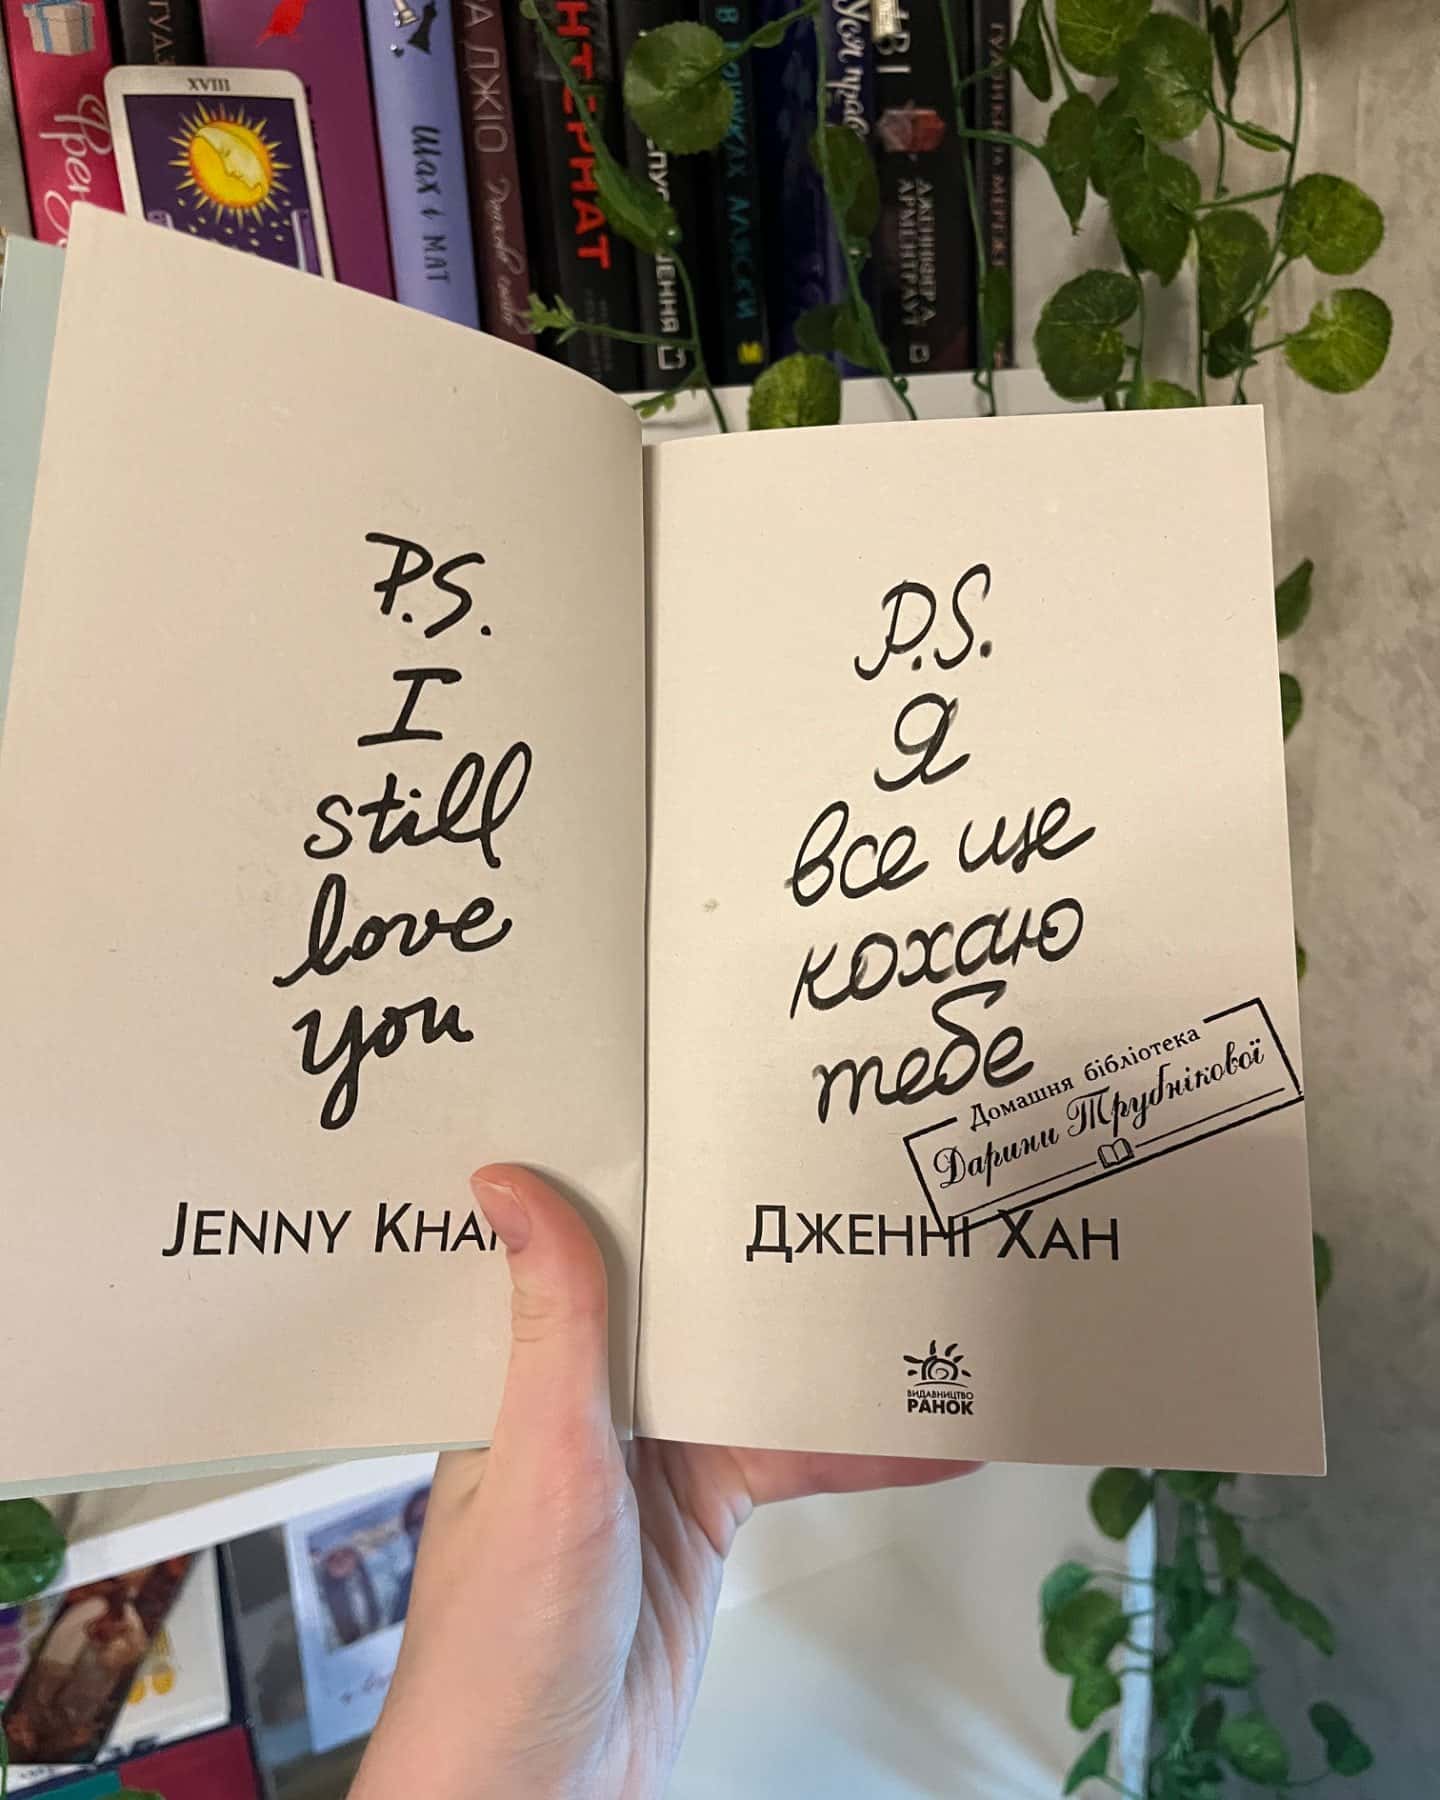 XVIII
Шах і мат
P.S.
I
still
love
you
JENNY KHA
P.S.
Я
все ще
кохаю
тебе
Домашня бібліотека
Дарини Трубнікової
ДЖЕННІ ХАН
ВИДАВНИЦТВО
РАНОК